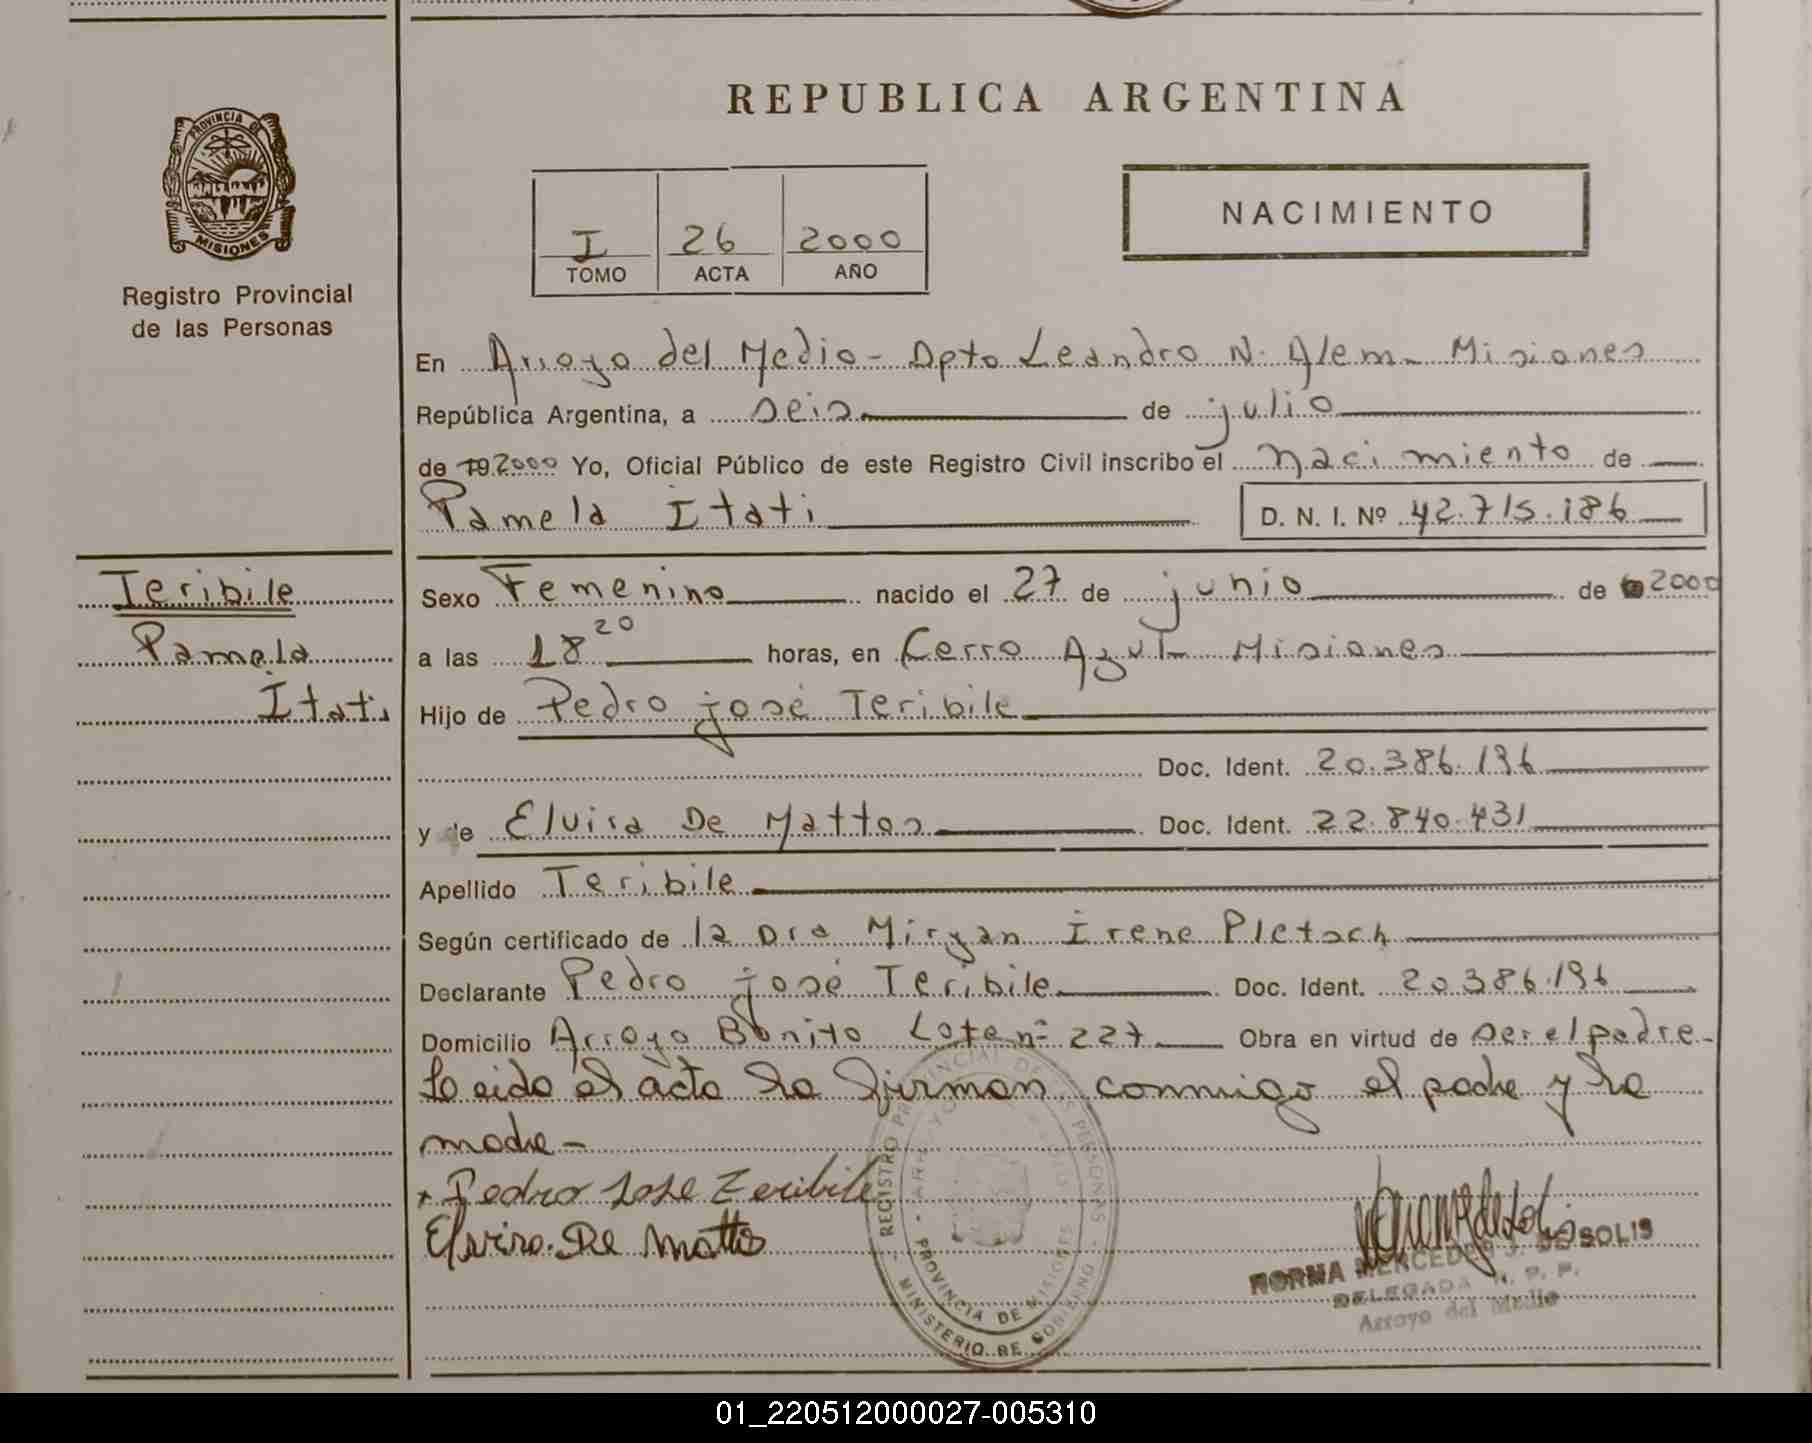 REPUBLICA ARGENTINA
PROVINCIA DE
MISIONES
Registro Provincial
de las Personas
I 26 2000
TOMO ACTA AÑO
NACIMIENTO
En Arroyo del Medio - Dpto Leandro N. Alem - Misiones
República Argentina, a seis de julio
de 19 2000 Yo, Oficial Público de este Registro Civil inscribo el nacimiento de
Pamela Itati D. N. I. Nº 42.715.186
Teribile
Pamela
Itati
Sexo Femenino nacido el 27 de junio de 2000
a las 18 20 horas, en Cerro Azul - Misiones
Hijo de Pedro josé Teribile
Doc. Ident. 20.386.196
y de Elvira De Mattos Doc. Ident. 22.840.431
Apellido Teribile
Según certificado de la Dra Miryan Irene Pletsch
Declarante Pedro josé Teribile Doc. Ident. 20.386.196
Domicilio Arroyo Bonito Lote nº 227 Obra en virtud de ser el padre -
Leido el acta la firman conmigo el padre y la
madre -
Pedro Jose Teribile
Elvira De Mattos
REGISTRO PROVINCIAL DE LAS PERSONAS
PROVINCIA DE MISIONES
MINISTERIO DE GOBIERNO
NORMA MERCEDES J. DE SOLIS
DELEGADA R. P. P.
Arroyo del Medio
01_220512000027-005310